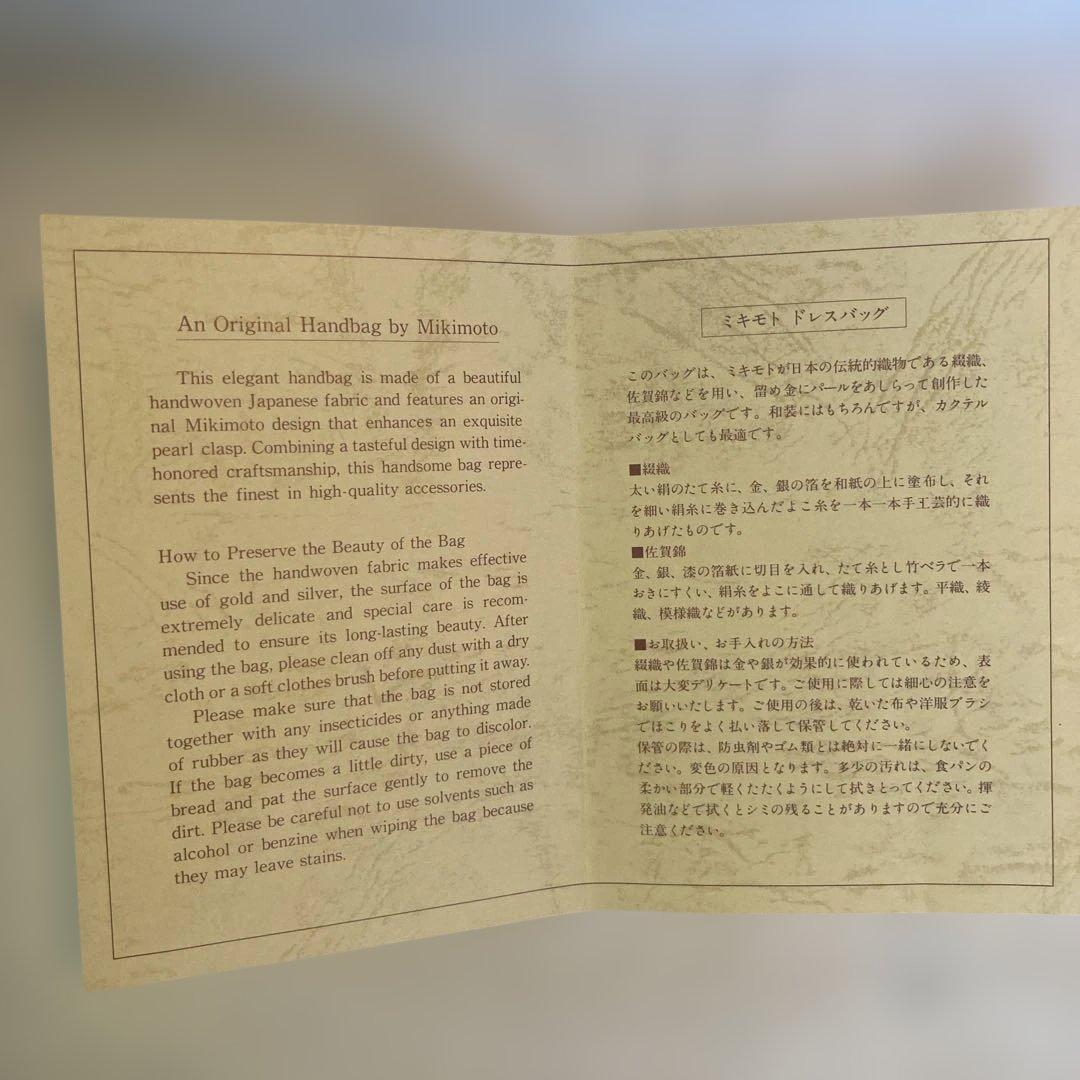 An Original Handbag by Mikimoto
This elegant handbag is made of a beautiful
handwoven Japanese fabric and features an origi-
nal Mikimoto design that enhances an exquisite
pearl clasp. Combining a tasteful design with time-
honored craftsmanship, this handsome bag repre-
sents the finest in high-quality accessories.
How to Preserve the Beauty of the Bag
Since the handwoven fabric makes effective
use of gold and silver, the surface of the bag is
extremely delicate and special care is recom-
mended to ensure its long-lasting beauty. After
using the bag, please clean off any dust with a dry
cloth or a soft clothes brush before putting it away.
Please make sure that the bag is not stored
together with any insecticides or anything made
of rubber as they will cause the bag to discolor.
If the bag becomes a little dirty, use a piece of
bread and pat the surface gently to remove the
dirt. Please be careful not to use solvents such as
alcohol or benzine when wiping the bag because
they may leave stains.
ミキモト ドレスバッグ
このバッグは、ミキモトが日本の伝統的織物である綴織、
佐賀錦などを用い、留め金にパールをあしらって創作した
最高級のバッグです。和装にはもちろんですが、カクテル
バッグとしても最適です。
■綴織
太い絹のたて糸に、金、銀の箔を和紙の上に塗布し、それ
を細い絹糸に巻き込んだよこ糸を一本一本手工芸的に織
りあげたものです。
■佐賀錦
金、銀、漆の箔紙に切目を入れ、たて糸とし竹ベラで一本
おきにすくい、絹糸をよこに通して織りあげます。平織、綾
織、模様織などがあります。
■お取扱い、お手入れの方法
綴織や佐賀錦は金や銀が効果的に使われているため、表
面は大変デリケートです。ご使用に際しては細心の注意を
お願いいたします。ご使用の後は、乾いた布や洋服ブラシ
でほこりをよく払い落して保管してください。
保管の際は、防虫剤やゴム類とは絶対に一緒にしないでく
ださい。変色の原因となります。多少の汚れは、食パンの
柔かい部分で軽くたたくようにして拭きとってください。揮
発油などで拭くとシミの残ることがありますので充分にご
注意ください。